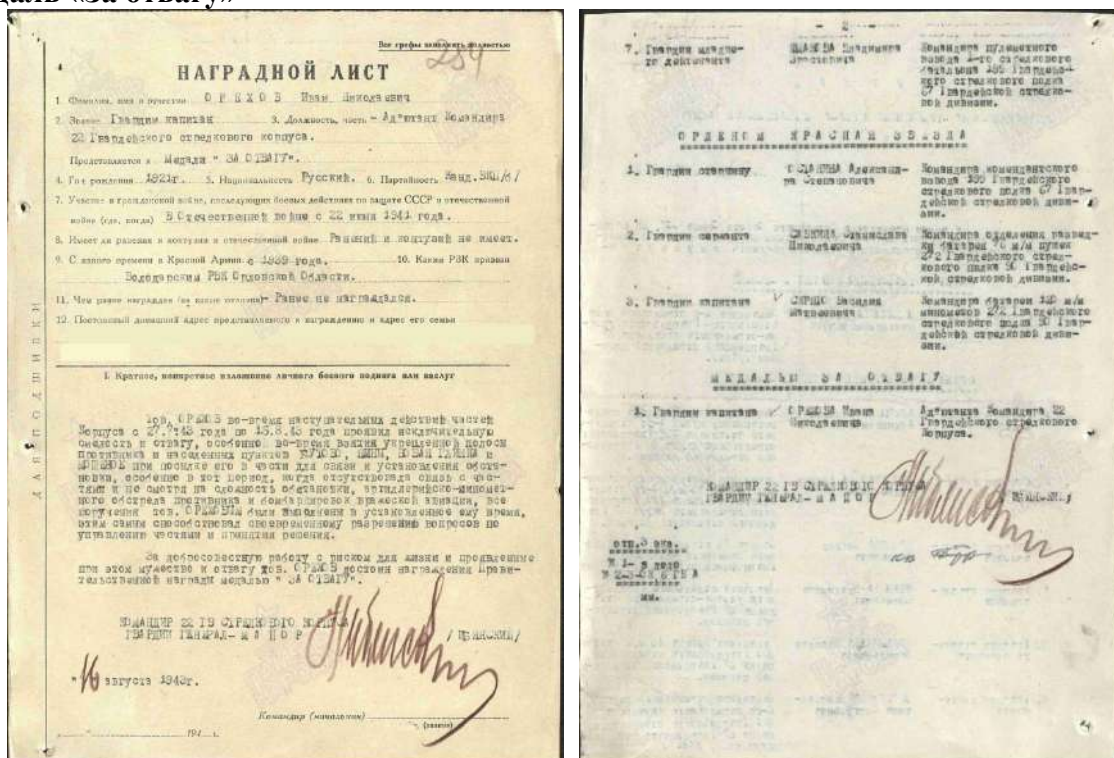 «За отвагу»
Все графы заполнить полностью
284
НАГРАДНОЙ ЛИСТ
1. Фамилия, имя и отчество ОРЕХОВ Иван Николаевич
2. Звание Гвардии капитан 3. Должность, часть - Ад"ютант Командира
22 Гвардейского стрелкового корпуса.
Представляется к Медали " ЗА ОТВАГУ".
4. Год рождения 1921г. 5. Национальность Русский. 6. Партийность Канд.ВКП/б/
7. Участие в гражданской войне, последующих боевых действиях по защите СССР и отечественной
войне (где, когда) В Отечественной войне с 22 июня 1941 года.
8. Имеет ли ранения и контузии в отечественной войне Ранений и контузий не имеет.
9. С какого времени в Красной Армии с 1939 года. 10. Каким РВК призван
Володарским РВК Орловской Области.
11. Чем ранее награжден (за какие отличия) - Ранее не награждался.
12. Постоянный домашний адрес представляемого к награждению и адрес его семьи
ДЛЯ ПОДШИВКИ
I. Краткое, конкретное изложение личного боевого подвига или заслуг
Тов. ОРЕХОВ во-время наступательных действий частей
Корпуса с 27.7.43 года по 15.8.43 года проявил исключительную
смелость и отвагу, особенно во-время взятия укрепленной полосы
противника и населенных пунктов
при посылке его в части для связи и установления обста-
новки, особенно в тот период, когда отсутствовала связь с час-
тями и не смотря на сложность обстановки, артиллерийско-миномет-
ного обстрела противника и бомбардировок вражеской авиации, все
поручения тов. ОРЕХОВЫМ были выполнены в установленное ему время,
этим самым способствовал своевременному разрешению вопросов по
управлению частями и принятия решения.
За добросовестную работу с риском для жизни и проявленные
при этом мужество и отвагу тов. ОРЕХОВ достоин награждения прави-
тельственной награды медалью " ЗА ОТВАГУ".
КОМАНДИР 22 ГВ СТРЕЛКОВОГО КОРПУСА
ГВАРДИИ ГЕНЕРАЛ-МАЙОР
"16 августа 1943г.
Командир (начальник)
(звание)
194 г.
- 2 -
7. Гвардии младше-
го лейтенанта
Владимира
Командира пулеметного
взвода 1-го стрелкового
батальона 199 Гвардейс-
кого стрелкового полка
67 Гвардейской стрелко-
вой дивизии.
ОРДЕНОМ КРАСНАЯ ЗВЕЗДА
1. Гвардии старшину
Александ-
ра Степановича
Командира комендантского
взвода 199 Гвардейского
стрелкового полка 67 Гвар-
дейской стрелковой диви-
зии.
2. Гвардии сержанта
Станислава
Николаевича
Командира отделения развед-
ки батареи 76 м/м пушек
272 Гвардейского стрел-
кового полка 90 Гвардейс-
кой стрелковой дивизии.
3. Гвардии капитана
Василия
Матвеевича
Командира батареи 120 м/м
минометов 272 Гвардейского
стрелкового полка 90 Гвар-
дейской стрелковой диви-
зии.
МЕДАЛЬЮ ЗА ОТВАГУ
1. Гвардии капитана
ОРЕХОВА Ивана
Николаевича
Ад"ютанта Командира 22
Гвардейского стрелкового
Корпуса.
КОМАНДИР 22 ГВ СТРЕЛКОВОГО КОРПУСА
ГВАРДИИ ГЕНЕРАЛ-МАЙОР
отп.3 экз.
№ 1- в дело